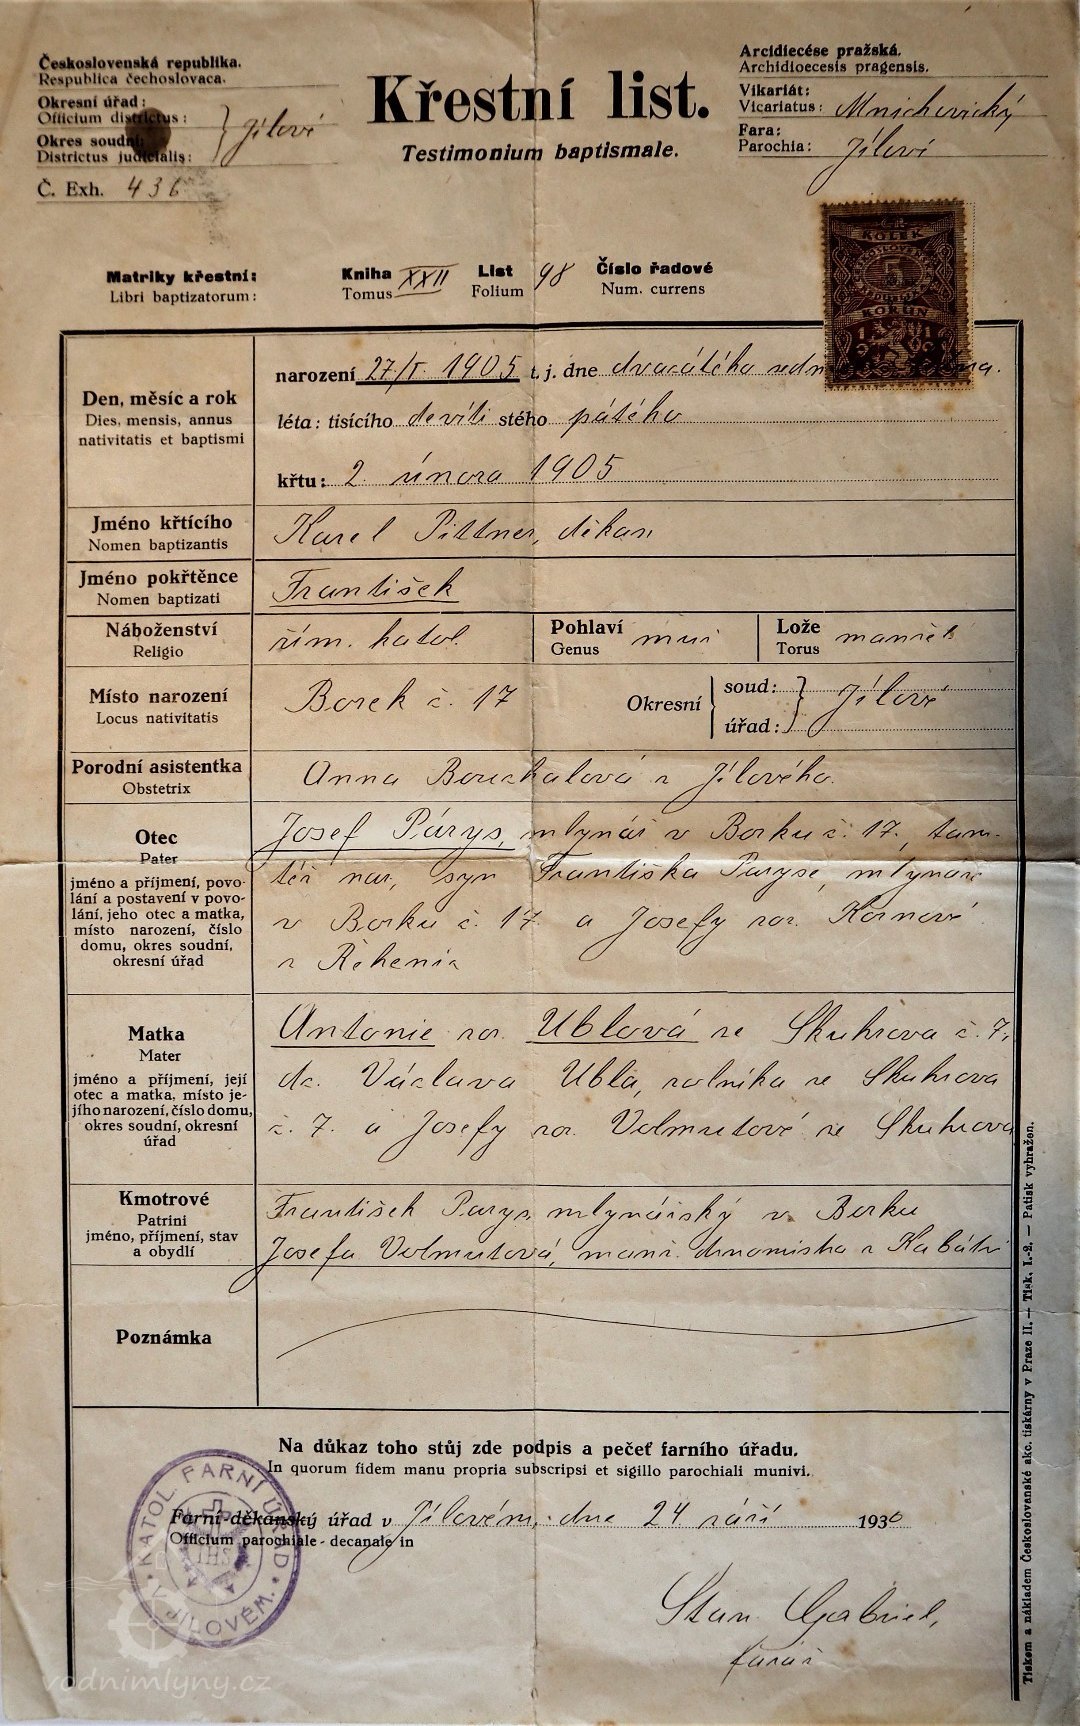 Československá republika.
Respublica čechoslovaca.
Okresní úřad:
Officium districtus:
Okres soudní:
Districtus judicialis:
} Jílové
Č. Exh. 436
Křestní list.
Testimonium baptismale.
Arcidiecése pražská.
Archidioecesis pragensis.
Vikariát:
Vicariatus: Mnichovický
Fara:
Parochia: Jílové
KOLEK
5
KORUN
Matriky křestní: Kniha XXII List 98 Číslo řadové
Libri baptizatorum: Tomus Folium Num. currens
Den, měsíc a rok
Dies, mensis, annus
nativitatis et baptismi
narození 27/I. 1905 t. j. dne dvacátého
léta: tisícího devíti stého pátého
křtu: 2. února 1905
Jméno křtícího
Nomen baptizantis
Karel Pittner, děkan
Jméno pokřtěnce
Nomen baptizati
František
Náboženství
Religio
řím. katol.
Pohlaví
Genus
Lože
Torus
Místo narození
Locus nativitatis
Borek č. 17
Okresní
soud:
úřad:
Jílové
Porodní asistentka
Obstetrix
Anna z Jílového.
Otec
Pater
jméno a příjmení, povo-
lání a postavení v povo-
lání, jeho otec a matka,
místo narození, číslo
domu, okres soudní,
okresní úřad
Josef Párys, mlynář v Borku č. 17., tam-
též nar., syn Františka Paryse, mlynáře
v Borku č. 17. a Josefy roz. Kornové
z Řehenic
Matka
Mater
jméno a příjmení, její
otec a matka, místo je-
jího narození, číslo domu,
okres soudní, okresní
úřad
Antonie roz. Ublová ze Skuhrova č. 7.
dc. Václava Ubla, rolníka ze Skuhrova
č. 7. a Josefy roz. Volmutové ze Skuhrova
Kmotrové
Patrini
jméno, příjmení, stav
a obydlí
František Parys, mlynářský v Borku
Josefa Volmutová, manž. domomistra z
Poznámka
Na důkaz toho stůj zde podpis a pečeť farního úřadu.
In quorum fidem manu propria subscripsi et sigillo parochiali munivi.
Farní-děkanský úřad v Jílovém, dne 24 září 1930
Officium parochiale-decanale in
KATOL. FARNÍ ÚŘAD V JÍLOVÉM.
IHS
Stan. Gabriel,
farář
Tiskem a nákladem Českoslovanské akc. tiskárny v Praze II. — Tisk. I.-2. — Patisk vyhražen.
vodnimlyny.cz